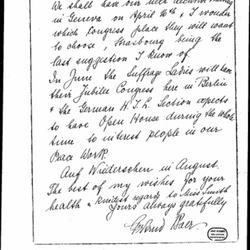 We shall have our next Executive meeting
in Geneva on April 16th & I wonder
which Congress place they will want
to choose, Strasbourg being the
last suggestion I know of.
In June the Suffrage Ladies will have
their Jubilee Congress here in Berlin
& the German W.I.L. Section expects
to have Open House during the whole
time to interest people in our
Peace Work.
Auf Wiedersehen in August.
The best of my wishes for your
health & kindest regards to Miss Smith
Yours always gratefully
Gertrud Baer